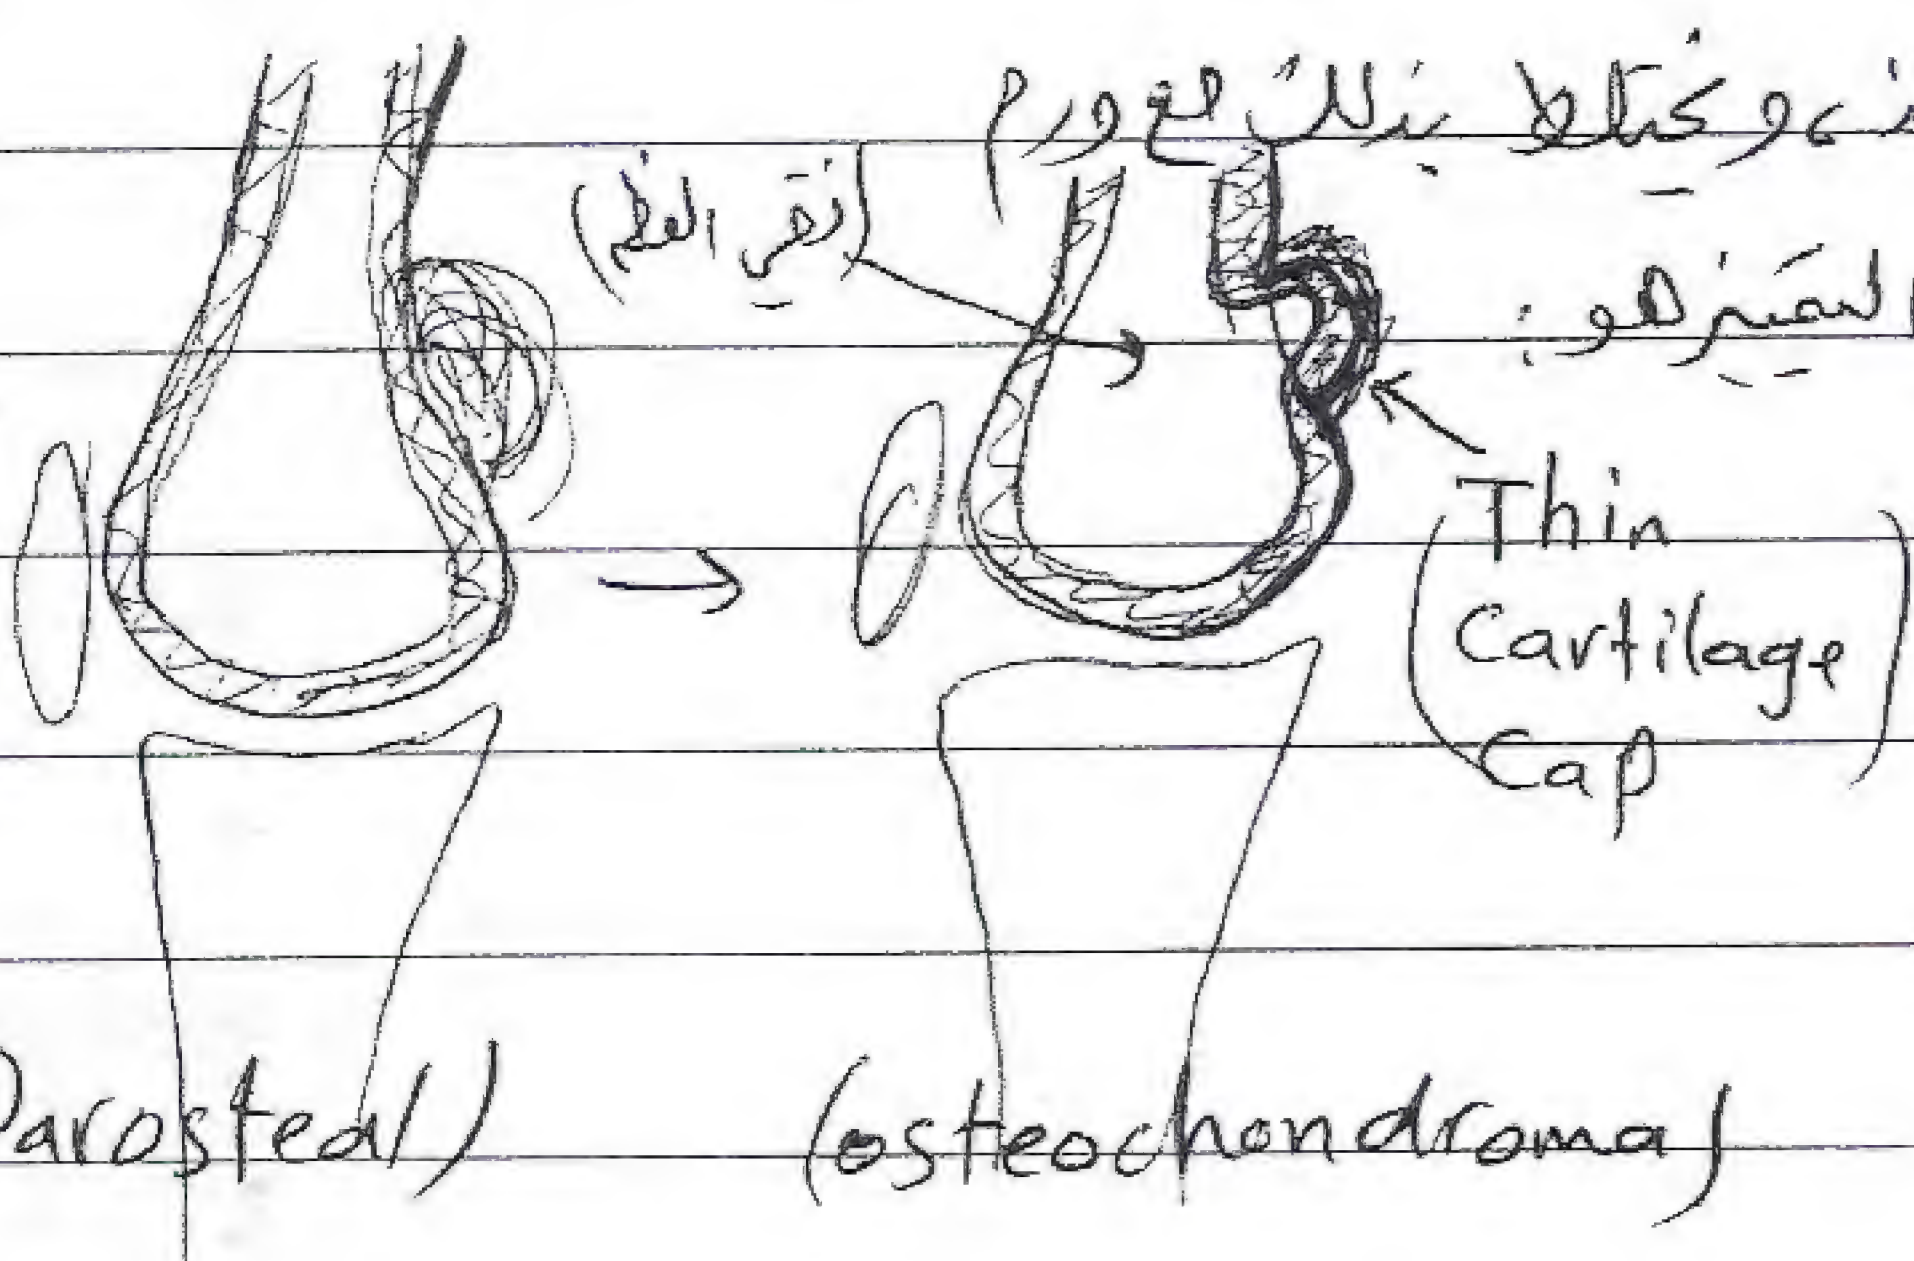 يختلط بذلك مع ورم
(نقي العظم)
التمييز هو:
(Thin
Cartilage
Cap)
Parosteal)
(osteochondroma)